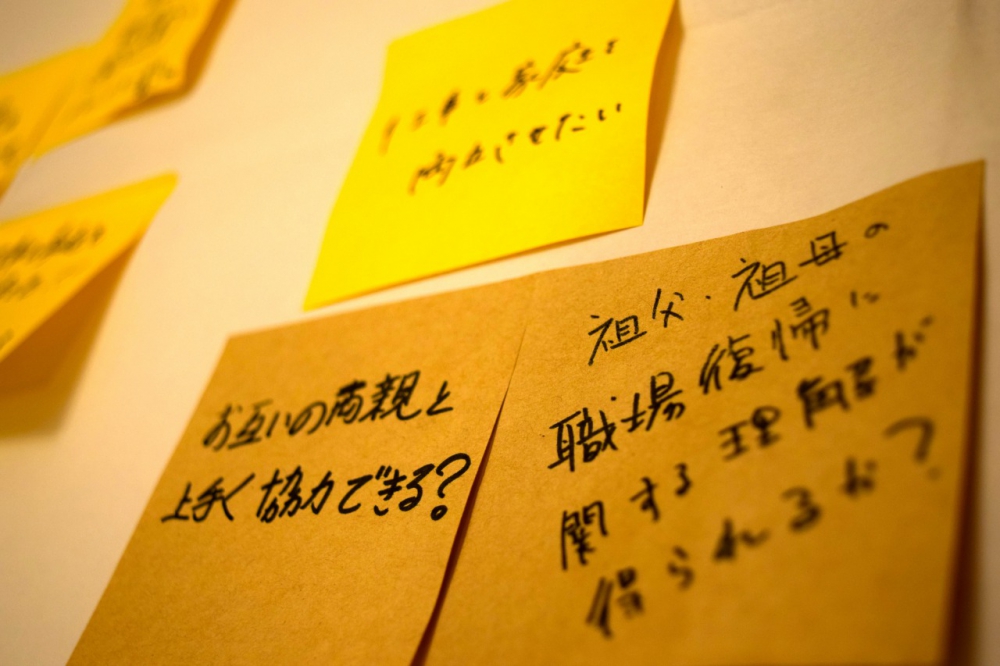 仕事と家庭を
両立させたい
お互いの両親と
上手く協力できる?
祖父・祖母の
職場復帰に
関する理解が
得られるか?